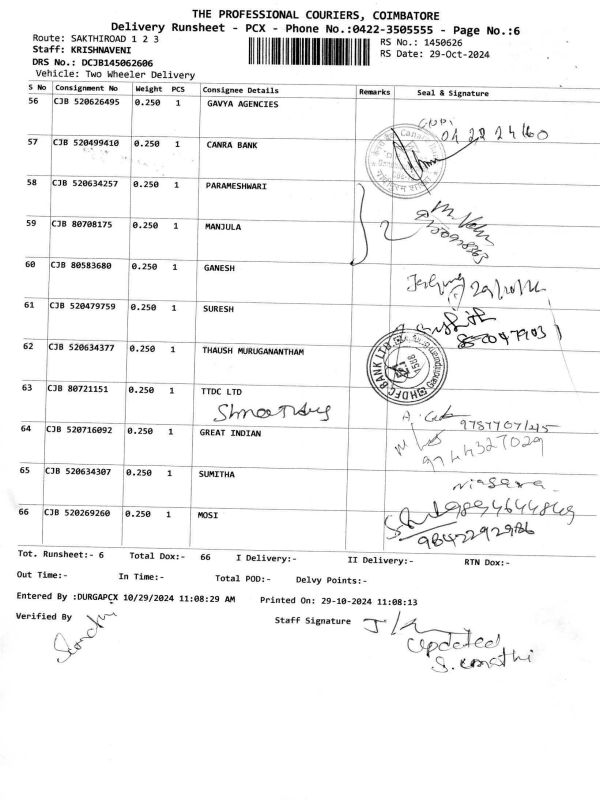 THE PROFESSIONAL COURIERS, COIMBATORE
Delivery Runsheet - PCX - Phone No.:0422-3505555 - Page No.:6
Route: SAKTHIROAD 1 2 3
RS No.: 1450626
Staff: KRISHNAVENI
RS Date: 29-Oct-2024
DRS No.: DCJB145062606
Vehicle: Two Wheeler Delivery
S No Consignment No Weight PCS Consignee Details Remarks Seal & Signature
56 CJB 520626495 0.250 1 GAVYA AGENCIES
57 CJB 520499410 0.250 1 CANRA BANK
58 CJB 520634257 0.250 1 PARAMESHWARI
59 CJB 80708175 0.250 1 MANJULA
60 CJB 80583680 0.250 1 GANESH
61 CJB 520479759 0.250 1 SURESH
62 CJB 520634377 0.250 1 THAUSH MURUGANANTHAM
HDFC BANK LTD
63 CJB 80721151 0.250 1 TTDC LTD
64 CJB 520716092 0.250 1 GREAT INDIAN
9744327029
65 CJB 520634307 0.250 1 SUMITHA
66 CJB 520269260 0.250 1 MOSI
9894644869
9842292986
Tot. Runsheet:- 6 Total Dox:- 66 I Delivery:- II Delivery:- RTN Dox:-
Out Time:- In Time:- Total POD:- Delvy Points:-
Entered By :DURGAPCX 10/29/2024 11:08:29 AM Printed On: 29-10-2024 11:08:13
Verified By Staff Signature
updated